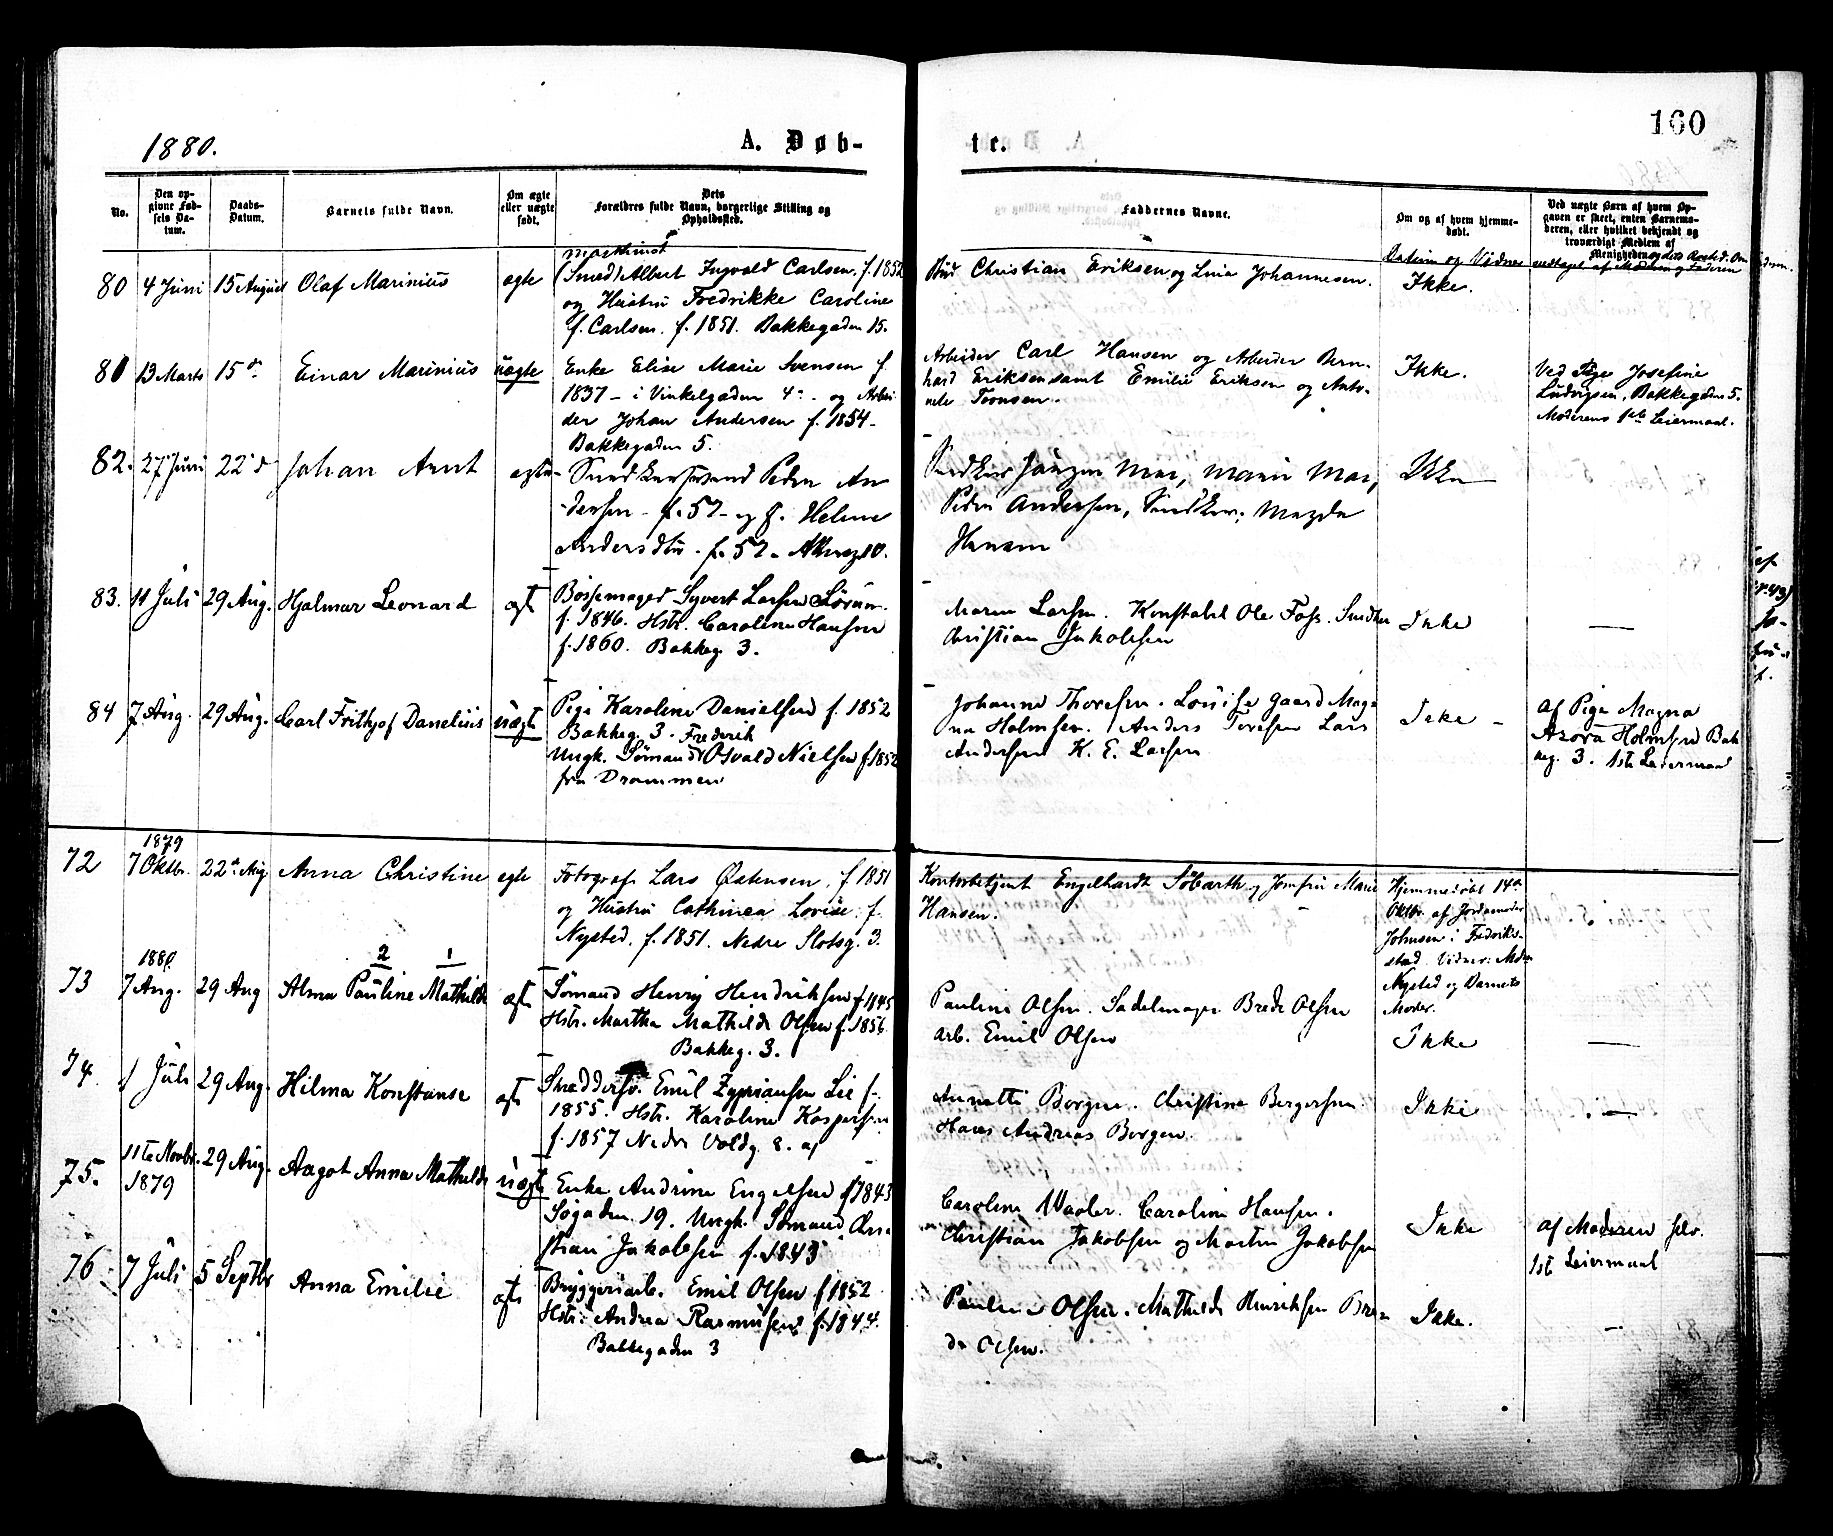 160
1880.
A. Døb-
te.
No.
Den op-
givne Fød-
sels Da-
tum.
Daabs-
Datum.
Barnets fulde Navn.
Om ægte
eller uægte
født.
Dets
Forældres fulde Navn, borgerlige Stilling og
Opholdssted.
Faddernes Navne.
Om og af hvem hjemme-
døbt.
Ved uægte Børn af hvem Op-
gaven er skeet, enten Barnemo-
deren, eller hvilket bekjendt og
troværdigt Medlem af
Menigheden
Datum og Vidner
80
4 Juni
15 August
Olaf Marinius
ægte
Maskinist
(Smed) Albert Ingvald Carlsen. f. 1852
og Hustru Fredrikke Caroline
f. Carlsen. f. 1851. Bakkegaden 15.
Christian Eriksen og Lina Johannesen.
Ikke.
81
13 Marts
15 d.
Einar Marinius
uægte
Enke Elise Marie Svensen f.
1837 - i Vinkelgaden 4 - og Arbei
der Johan Andersen f. 1854 -
Bakkegaden 5.
Arbeider Carl Hansen og Arbeider Bern-
hard Eriksen samt Emilie Eriksen og Anto-
nete Tronsen.
Ikke.
Ved Pige Josefine
Ludvigsen, Bakkegaden 5.
Moderens 1ste Leiermaal.
82.
27 Juni
22 d
Johan Arnt
ægte
Peder An
dersen - f. 57 - og f. Helene
Andersdtr. f. 57 -
Jørgen Moe, Marie Moe,
Peder Andersen, Snedker, Magda
Hansen
Ikke
83.
11 Juli
29 Aug.
Hjalmar Leonard
ægte
Bøssemager Syvert Larsen Sørum.
f. 1846. Hstr. Caroline Hansen
f. 1860. Bakkeg 3.
Maren Larsen. Konstabel Ole Foss. Snedker
Christian Jakobsen
Ikke
84
7 Aug.
29 Aug.
Carl Frithjof Danelius
uægte
Pige Karoline Danielsen f. 1852
Bakkeg. 3. Frederik
Ungk. Sømand Osvald Nielsen f 1852
fra Drammen
Johanne Thoresen. Louise Gaard Mag-
na Holmsen. Anders Toresen Lars
Andersen K. E. Larsen
Ikke -
af Pige Magna
Asora Holmsen Bak
keg. 3. 1ste Leiermaal
72
1879
7 Oktbr.
22 Aug
Anna Christine
ægte
Fotograf Lars Østensen. f. 1851
og Hustru Cathinca Lovise f.
Nysted. f. 1851. Nedre Slotsg. 3.
Kontorbetjent Engelhardt Søbarth og Jomfru Marie
Hansen.
Hjemmedøbt 14de
Oktbr. af Jordemoder
Johnsen i Fredriks-
stad Vidner: Mdm
Nysted og Barnets
Moder.
73
1880.
7 Aug.
29 Aug
2 1
Alma Pauline Mathilde
ægte
Sømand Henrij Hendriksen f 1845
Hstr. Martha Mathilde Olsen f. 1856
Bakkeg. 3.
Pauline Olsen. Sadelmager Brede Olsen
Arb. Emil Olsen
Ikke
74.
1 Juli
29 Aug.
Hilma Konstanse
ægte
Emil Zyprianssen Lie f.
1855. Hstr. Karoline Kaspersen
f. 1857 Nedre Voldg. 8.
Annette Borgen. Christine Bergersen
Hans Andreas Borgen.
Ikke
75.
11te Novbr.
1879
29 Aug.
Aagot Anna Mathilde
uægte
Enke Andrine Engelsen f 1843
Søgaden 19. Ungk. Sømand Chri-
stian Jakobsen f. 1843
Caroline Waaler. Caroline Hansen.
Christian Jakobsen og Morten Jakobsen
Ikke
af Moderen selv.
1ste Leiermaal
76
7 Juli
5 Septbr
Anna Emilie
ægte
Bryggeriarb. Emil Olsen f 1852
Hstr: Andrea Rasmussen f. 1844.
Bakkegaden 3
Pauline Olsen. Mathilde Henriksen Bre-
de Olsen.
Ikke.